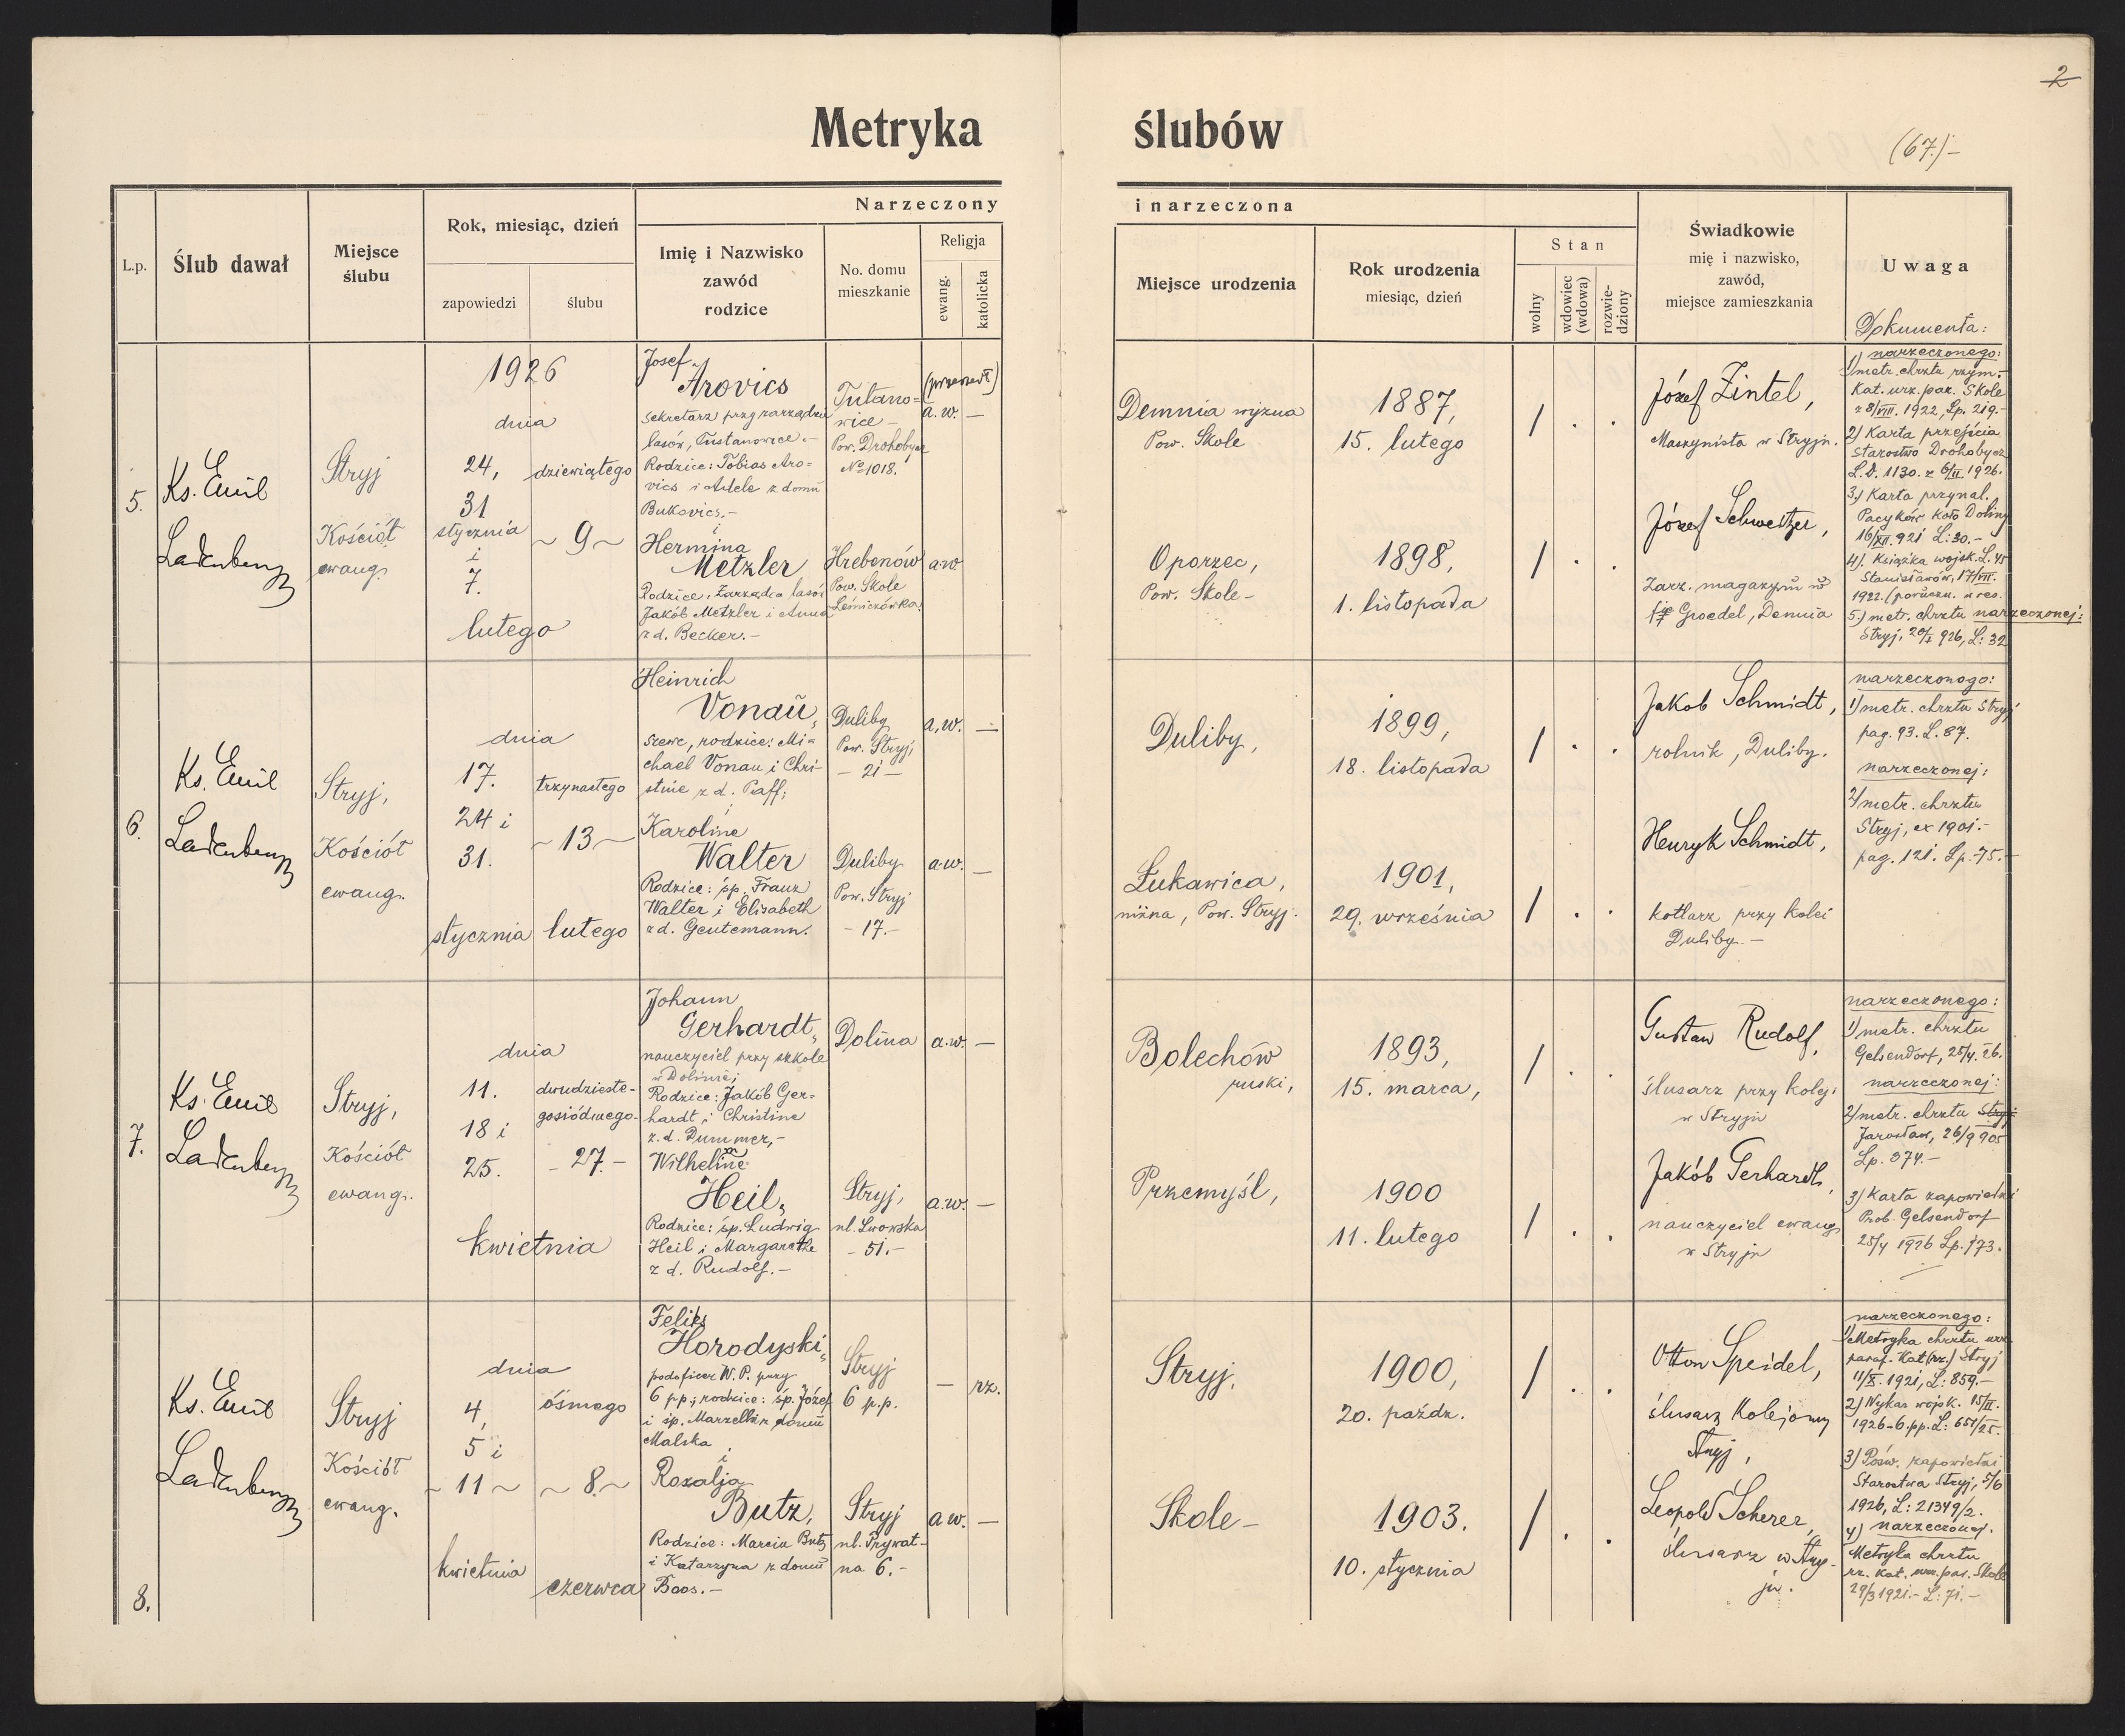 2
(67.)–
Metryka ślubów
Narzeczony i narzeczona
L.p.
Ślub dawał
Miejsce
ślubu
Rok, miesiąc, dzień
zapowiedzi
ślubu
Imię i Nazwisko
zawód
rodzice
No. domu
mieszkanie
Religja
ewang.
katolicka
Miejsce urodzenia
Rok urodzenia
miesiąc, dzień
Stan
wolny
wdowiec
(wdowa)
rozwie-
dziony
Świadkowie
mię i nazwisko,
zawód,
miejsce zamieszkania
Uwaga
Dokumenta:
5.
Ks. Emil
Ladenberger
Stryj
Kościół
ewang.
1926
dnia
24,
31
stycznia
i
7.
lutego
dziewiątego
~ 9 ~
Josef
Arovics
sekretarz przy zarządzie
lasów, Tustanowice.-
Rodzice: Tobias Aro=
vics i Adele z domu
Bukovics.-
i
Hermina
Metzler
Rodzice: Zarządca lasów
Jakób Metzler i Anna
z d. Becker.-
Tutano=
wice -
Pow. Drohobycz
No 1018.
Hrebenów
Pow. Skole
Leśniczówka.
(przeszedł)
a.w. –
a.w
Demnia wyżna
Pow. Skole
Oporzec,
Pow. Skole-
1887,
15. lutego
1898,
1. listopada
/ . .
/ . .
Józef Zintel,
Maszynista w Stryju.
Józef Schweitzer,
Zarz. magazynu w
Groedel, Demnia
1) narzeczonego:
metr. chrztu rzym.-
Kat. urz. par. Skole
z 8/VIII. 1922, Lp. 219.-
2) Karta przejścia
Starostwo Drohobycz
L.D. 1130. z 6/II. 1926.
3.) Karta przynal.
Pacyków koło Doliny
16/XII. 921 L: 30.-
4). Książka wojsk. L. 45
Stanisławów, 17/VII.
1922. (poruczn. w res.
5.) metr. chrztu narzeczonej:
Stryj, 20/I 926, L: 32
6.
Ks. Emil
Ladenberger
Stryj,
Kościół
ewang.
dnia
17.
24 i
31.
stycznia
trzynastego
- 13 -
lutego
Heinrich
Vonau,
szewc, rodzice: Mi=
chael Vonau i Chri-
stine z d. Paff;
i
Karoline
Walter
Rodzice: śp. Franz
Walter i Elisabeth
z d. Gentemann.
Duliby
Pow. Stryj,
- 21 -
Duliby
Pow. Stryj
- 17.-
a.w. –
a.w. –
Duliby,
Łukawica,
niżna, Pow. Stryj.
1899,
18. listopada
1901,
29. września
/ . .
/ . .
Jakob Schmidt,
rolnik, Duliby.
Henryk Schmidt,
kotlarz przy kolei
Duliby.-
narzeczonego:
1) metr. chrztu Stryj
pag. 93. L. 87.
narzeczonej:
2) metr. chrztu
Stryj, ex 1901.-
pag. 121. Lp.-75.-
7.
Ks. Emil
Ladenberger
Stryj,
Kościół
ewang.
dnia
11.
18 i
25.
kwietnia
dwudzieste-
gosiódmego-
- 27.-
Johann
Gerhardt,
nauczyciel przy szkole
w Dolinie;
Rodzice: Jakób Ger=
hardt i Christine
z. d. Dummer,-
Wilheline
Heil,
Rodzice: śp. Ludwig
Heil i Margarethe
z d. Rudolf.-
Dolina
Stryj,
ul. Lwowska
- 51.-
a.w. –
a.w. –
Bolechów
ruski,
Przemyśl,
1893,
15. marca,
1900
11. lutego
/ . .
/ . .
Gustaw Rudolf,
ślusarz przy kolei
w Stryju
Jakób Gerhardt,
nauczyciel ewang.
w Stryju
narzeczonego:
1) metr. chrztu
Gelsendorf, 25/4. 26.
narzeczonej:
2) metr. chrztu Stryj:
Jarosław, 26/9 905
Lp. 374.-
3) Karta zapowiedzi
Prob. Gelsendorf
25/4 1926 Lp. 173.
8.
Ks. Emil
Ladenberger
Stryj
Kościół
ewang.
dnia
4,
5 i
~ 11 ~
kwietnia
ósmego
~ 8. ~
czerwca
Feliks
Horodyski,
podoficer W.P. przy
6 pp; rodzice: śp. Józef
i śp. Marzella z domu
Malska
i
Rozalja
Butz,
Rodzice: Marcin Butz
i Katarzyna z domu
Boos.-
Stryj
6 p.p.
Stryj
ul. Prywat-
na 6.-
– rz.
a w. –
Stryj,
Skole-
1900,
20. paźdz.
1903.
10. stycznia
/ . .
/ . .
Otton Speidel,
ślusarz Kolejowy
Stryj,
Leopold Scherer,
ślusarz w Stry-
ju.
narzeczonego:
1) Metryka chrztu urz.
paraf. Kat (rz.) Stryj
11/X. 1921, L: 859.-
2) Wykaz wojsk. 15/III.
1926-6.pp. L: 651/25.
3) Pośw. zapowiedzi
Starostwa Stryj, 5/6
1926, L: 21349/2.
4) narzeczonej.
Metryka chrztu
rz. Kat. urz. par. Skole
29/3 1921.- L: 71.-